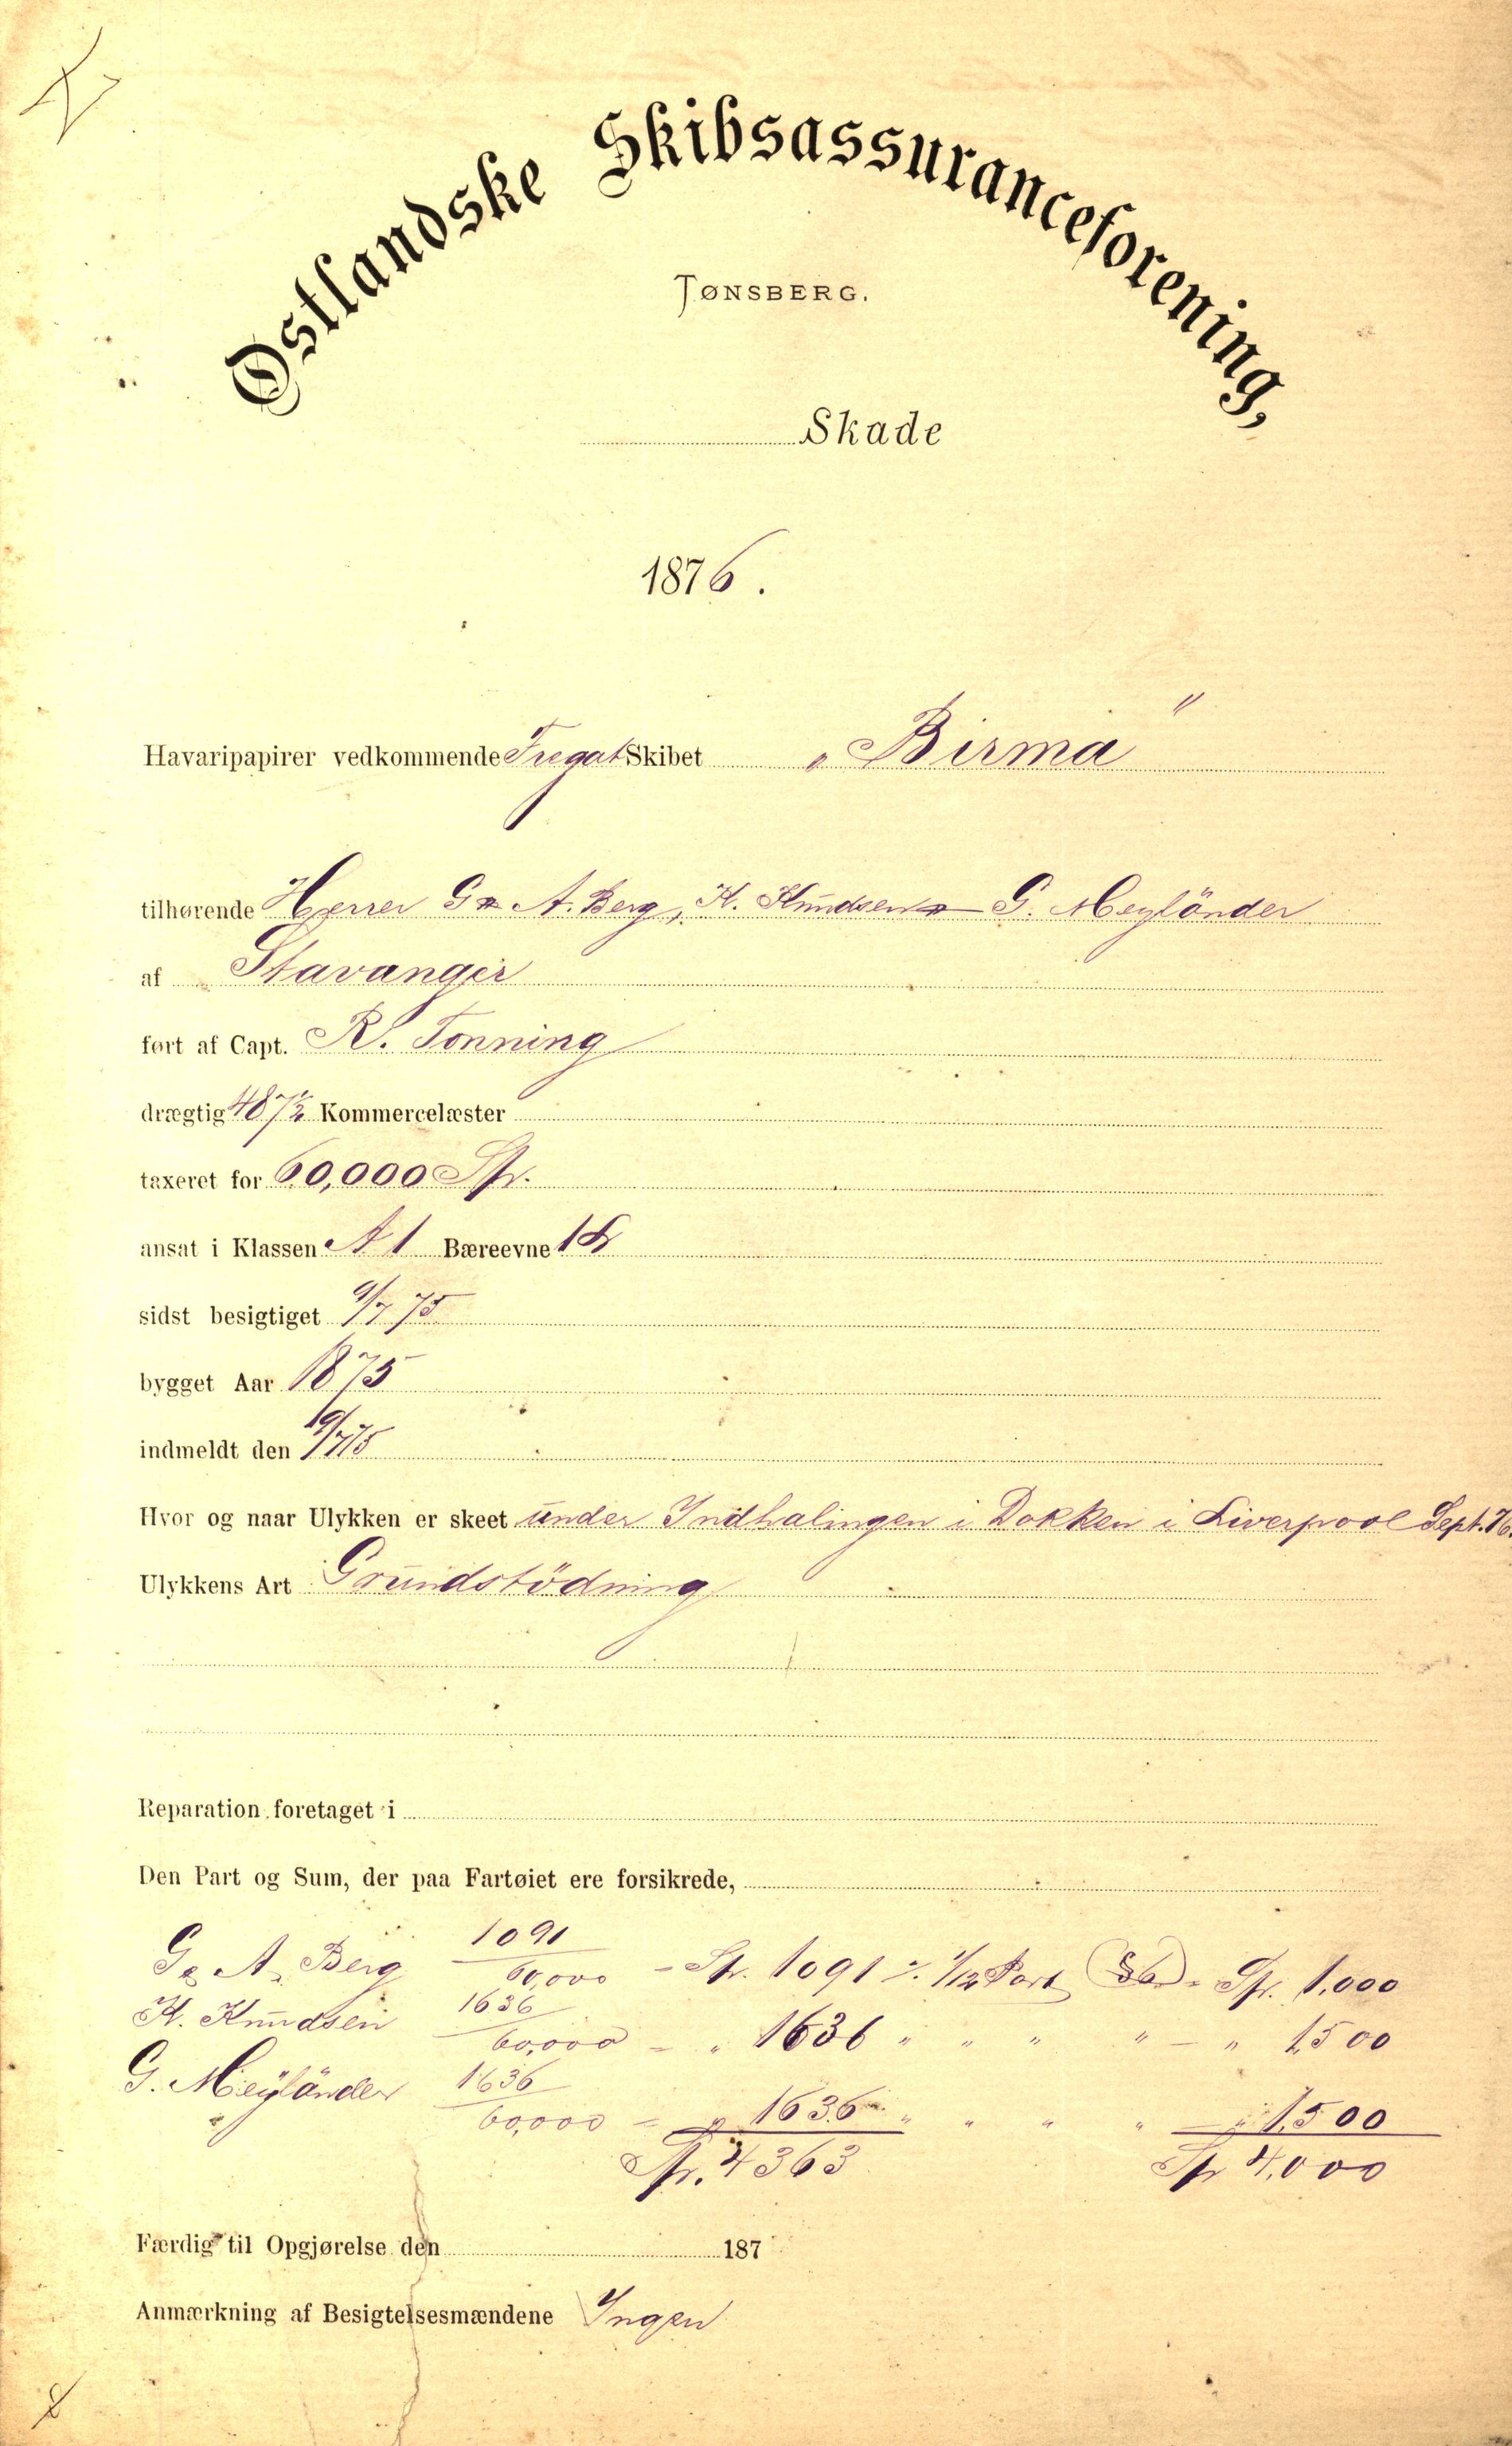 Østlandske Skibsassuranceforening,
TØNSBERG.
Skade
1876.
Havaripapirer vedkommende Fregat Skibet „Birma“
tilhørende Herrer G & A. Berg, H. Knudsen & G. Meyländer
af Stavanger
ført af Capt. R. Tonning
drægtig 487½ Kommercelæster
taxeret for 60,000 Spr.
ansat i Klassen A 1 Bæreevne
sidst besigtiget 9/7 75
bygget Aar 1875
indmeldt den 19/7 75
Hvor og naar Ulykken er skeet under Indhalingen i Dokken i Liverpool Sept. 76.
Ulykkens Art Grundstödning
Reparation foretaget i
Den Part og Sum, der paa Fartøiet ere forsikrede,
G & A. Berg 1091/60,000 - Spr. 1091 ÷ 1/12 Part (§6) = Spr. 1,000
H. Knudsen 1636/60,000 - „ 1636 „ „ „ „ - „ 1,500
G. Meyländer 1636/60,000 - „ 1636 „ „ „ „ - „ 1,500
Spr. 4363 Spr 4,000
Færdig til Opgjørelse den 187
Anmærkning af Besigtelsesmændene Ingen